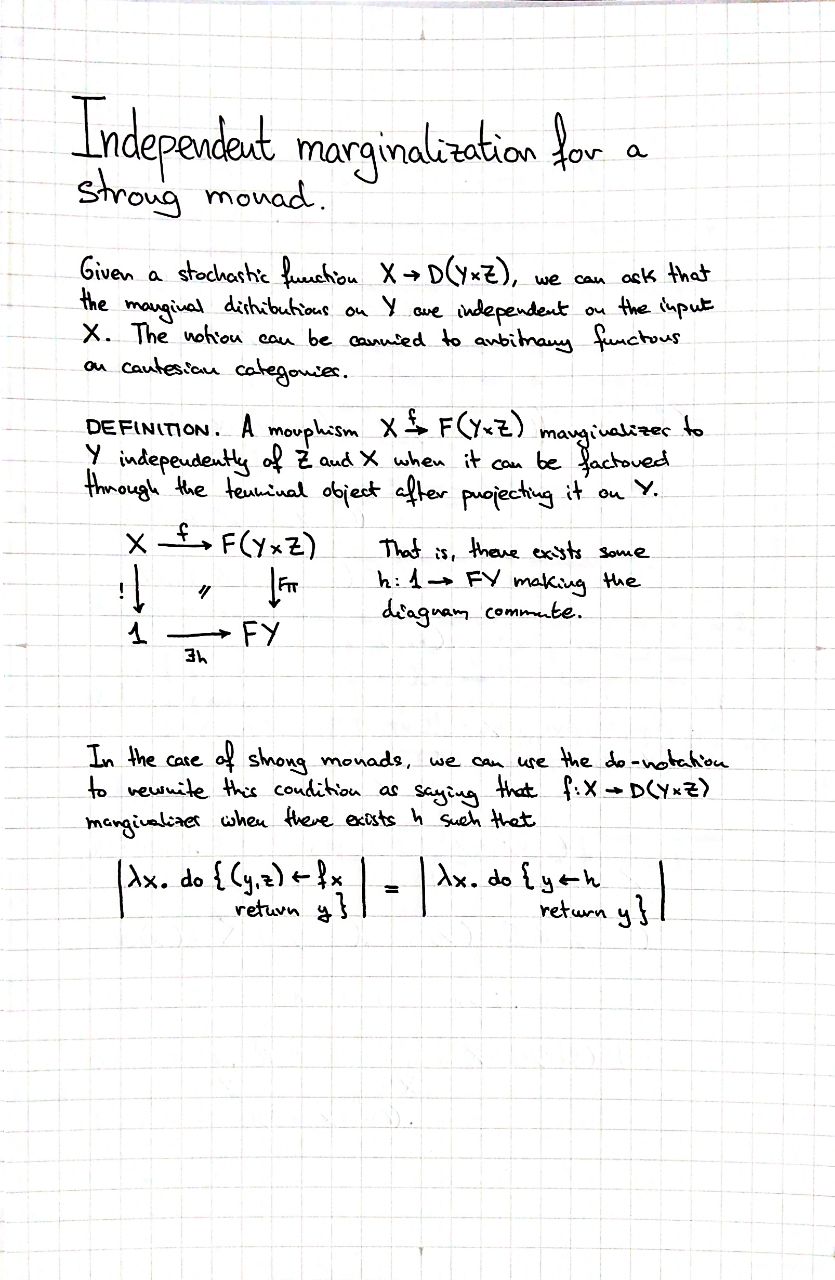 Independent marginalization for a
strong monad.
Given a stochastic function X → D(Y×Z), we can ask that
the marginal distributions on Y are independent on the input
X. The notion can be carried to arbitrary functors
on cartesian categories.
DEFINITION. A morphism X →f F(Y×Z) marginalizes to
Y independently of Z and X when it can be factored
through the terminal object after projecting it on Y.
X →f F(Y×Z)
! ↓ // ↓ Fπ
1 → FY
∃h
That is, there exists some
h: 1 → FY making the
diagram commute.
In the case of strong monads, we can use the do-notation
to rewrite this condition as saying that f: X → D(Y×Z)
marginalizes when there exists h such that
| λx. do { (y,z) ← f x | = | λx. do { y ← h |
| return y } | | return y } |